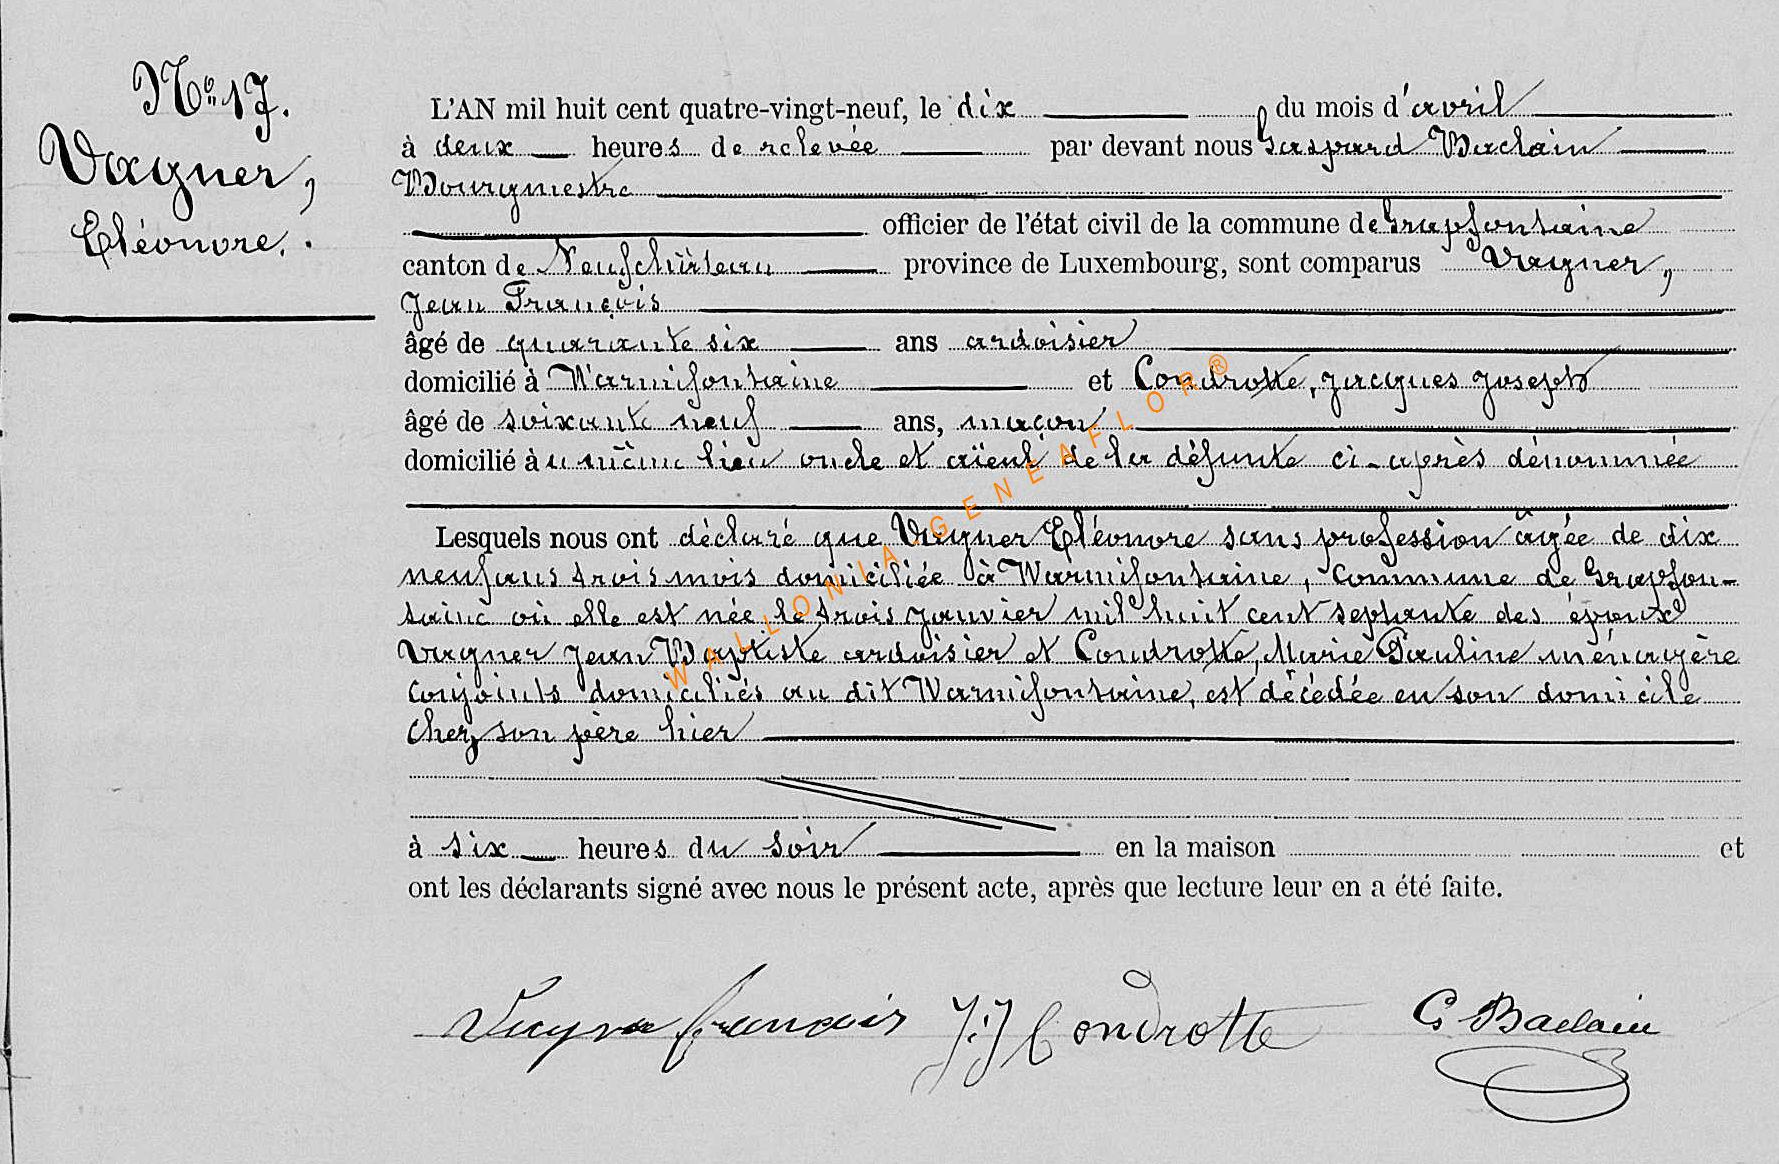 N° 17.
Vagner,
Eléonore.
L'AN mil huit cent quatre-vingt-neuf, le dix du mois d'avril
à deux heures de relevée par devant nous Gaspard Baclain
Bourgmestre
officier de l'état civil de la commune de Grapfontaine
canton de Neufchâteau province de Luxembourg, sont comparus Vagner,
Jean François
âgé de quarante six ans ardoisier
domicilié à Warmifontaine et Condrotte, Jacques Joseph
âgé de soixante neuf ans, maçon
domicilié au même lieu oncle et aïeul de la défunte ci-après dénommée
Lesquels nous ont déclaré que Vagner Eléonore sans profession âgée de dix
neuf ans trois mois domiciliée à Warmifontaine, commune de Grapfon-
taine où elle est née le trois janvier mil huit cent septante des époux
Vagner Jean Baptiste ardoisier et Condrotte, Marie Pauline ménagère
conjoints domiciliés au dit Warmifontaine, est décédée en son domicile
chez son père hier
à six heures du soir en la maison et
ont les déclarants signé avec nous le présent acte, après que lecture leur en a été faite.
Vagner francois J:J Condrotte G Baclain
WALLONIA GENEAFLOR®